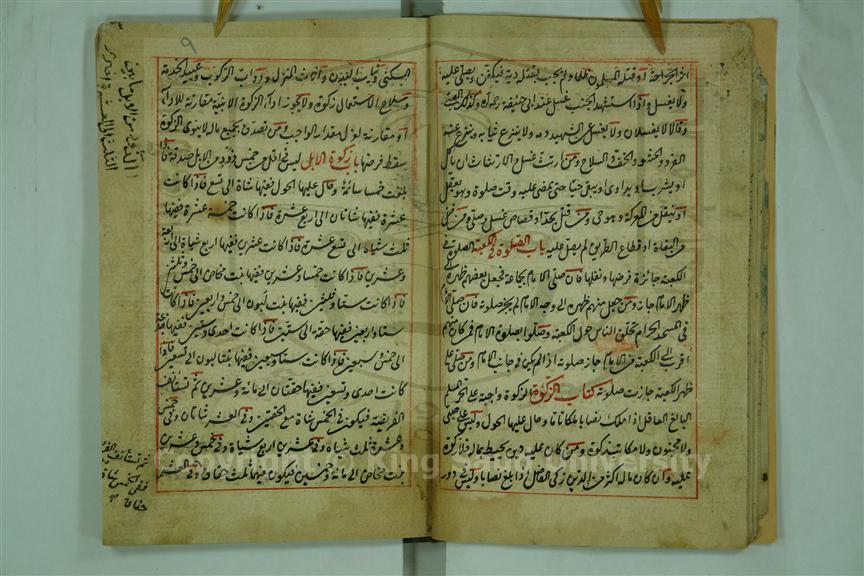 اثر الجراحة أو قتله المسلمون ظلما ولم يجب بقتله دية فيكفن ويصلى عليه
ولا يغسل وإذا استشهد الجنب غسل عند أبي حنيفة رحمه الله وكذلك الصبي
وقالا لا يغسلان ولا يغسل عن الشهيد دمه ولا ينزع ثيابه وينزع عنه
الفرو والحشو والخف والسلاح ومن ارتث غسل والارتثاث ان يأكل
او يشرب او يداوى او يبقى حيا حتى يمضى عليه وقت صلوة وهو يعقل
او ينقل من المعركة وهو حي ومن قتل بحد او قصاص غسل وصلى ومن قتل
من البغاة او قطاع الطريق لم يصل عليه باب الصلوة في الكعبة الصلوة في
الكعبة جائزة فرضها ونفلها فان صلى الامام بجماعة فجعل بعضهم ظهره الى
ظهر الامام جاز ومن جعل منهم ظهره الى وجه الامام لم يجز صلوته فان صلى الامام
في المسجد الحرام تحلق الناس حول الكعبة وصلوا بصلوة الامام فمن كان منهم
اقرب الى الكعبة من الامام جاز صلوته اذا لم يكن في جانب الامام ومن صلى على
ظهر الكعبة جازت صلوته كتاب الزكوة الزكوة واجبة على الحر المسلم
البالغ العاقل اذا ملك نصابا ملكا تاما وحال عليها الحول وليس على صبي
ولا مجنون ولا مكاتب زكوة ومن كان عليه دين يحيط بماله فلا زكوة
عليه وان كان ماله اكثر من الدين زكى الفاضل اذا بلغ نصابا وليس في دور
٩
السكنى وثياب البدن واثاث المنزل ودواب الركوب وعبيد الخدمة
وسلاح الاستعمال زكوة ولا يجوز اداء الزكوة الا بنية مقارنة للاداء
او مقارنة لعزل مقدار الواجب ومن تصدق بجميع ماله لا ينوى الزكوة
سقط فرضها باب زكوة الابل ليس في اقل من خمس ذود من الابل صدقة فاذا
بلغت خمسا سائمة وحال عليها الحول ففيها شاة الى تسع فاذا كانت
عشرة ففيها شاتان الى اربع عشرة فاذا كانت خمسة عشرة ففيها
ثلث شياه الى تسع عشرة فاذا كانت عشرين ففيها اربع شياه الى اربعة
وعشرين فاذا كانت خمسا وعشرين ففيها بنت مخاض الى خمس وثلثين
فاذا كانت ستا وثلثين ففيها بنت لبون الى خمس واربعين فاذا كانت
ستا واربعين ففيها حقة الى ستين فاذا كانت احدى وستين ففيها جذعة
الى خمس وسبعين فاذا كانت ستا وسبعين ففيها بنتا لبون الى تسعين فاذا
كانت احدى وتسعين ففيها حقتان الى مائة وعشرين ثم تستأنف
الفريضة فيكون في الخمس شاة مع الحقتين وفي العشر شاتان وفي خمس
وعشرة ثلث شياه وفي عشرين اربع شياه وفي خمس وعشرين
بنت مخاض الى مائة وخمسين فيكون فيها ثلث حقاق وفي العشر